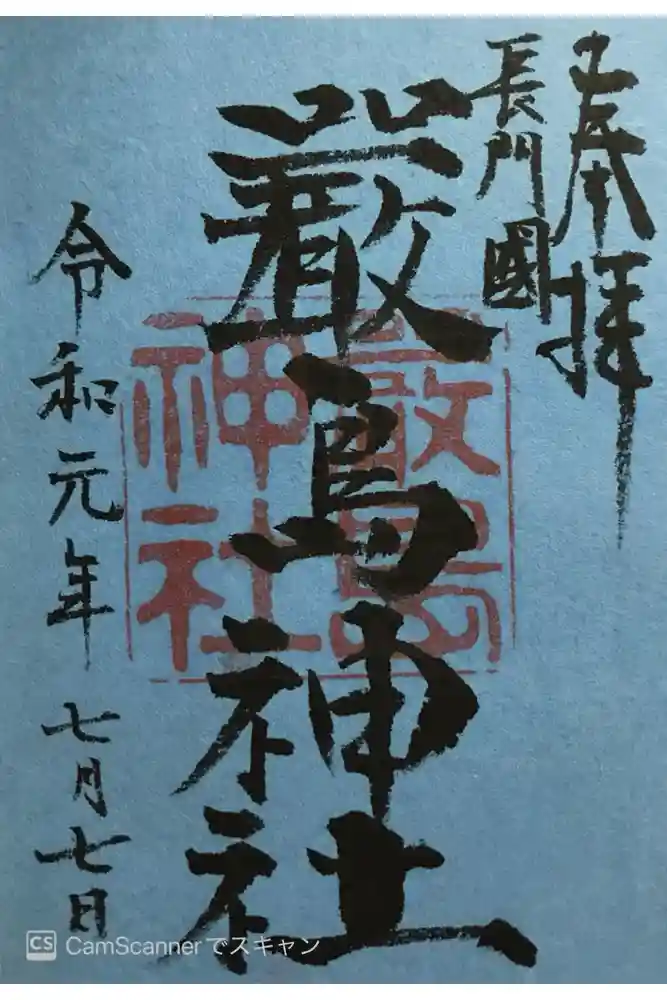 奉拝
長門國
厳島神社
厳島
神社
令和元年 七月七日
CS CamScannerでスキャン